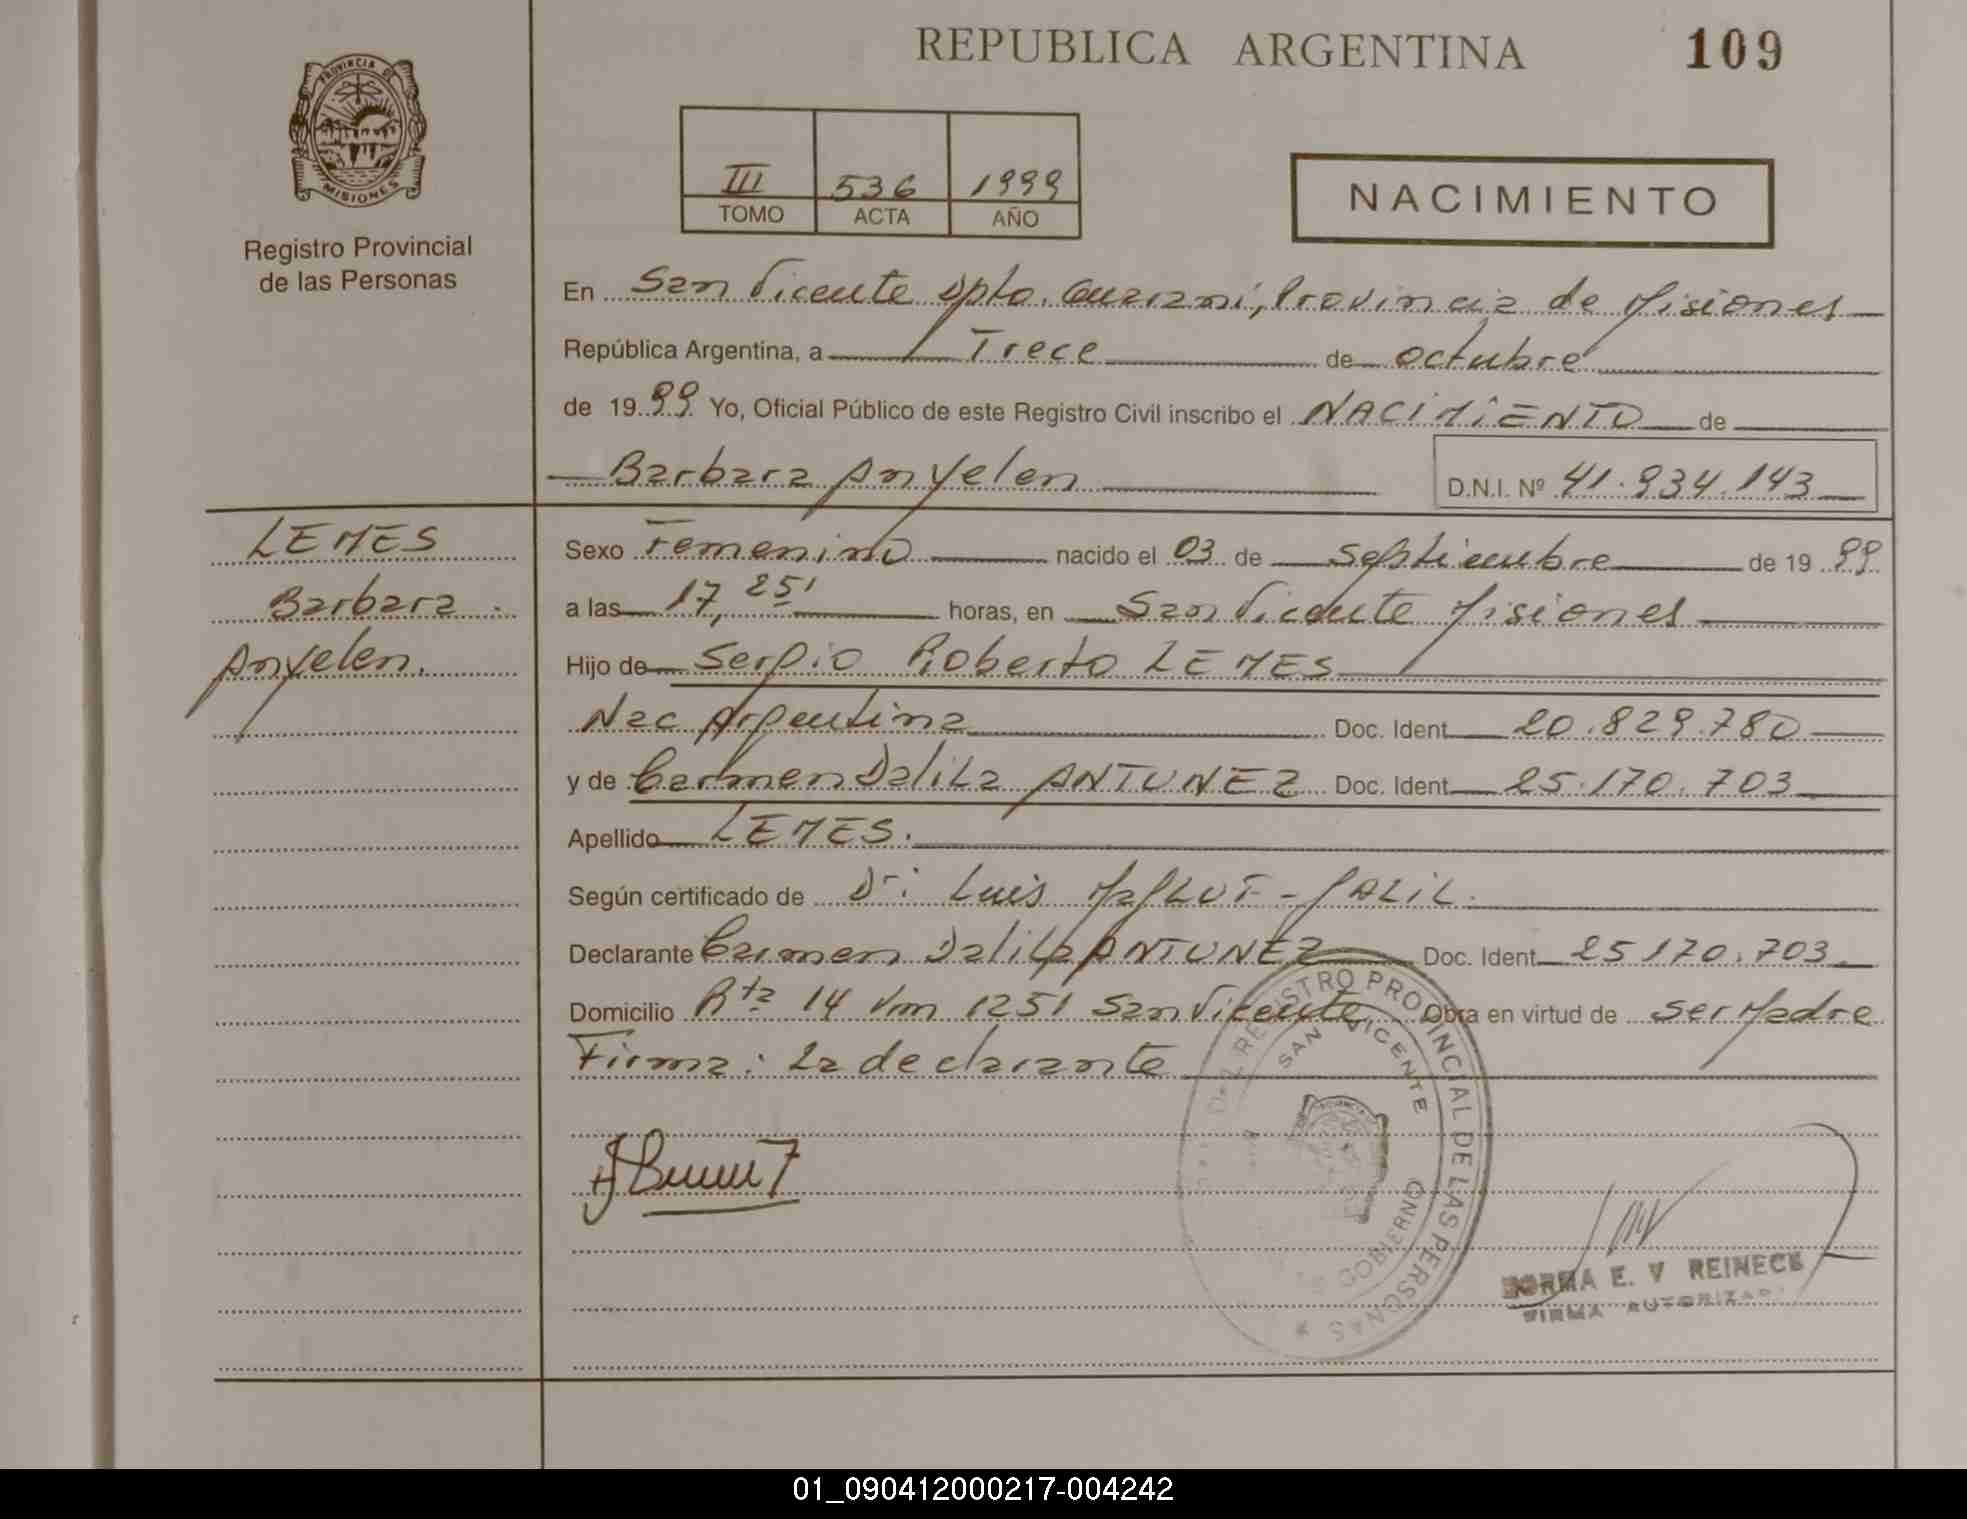 REPUBLICA ARGENTINA
109
PROVINCIA DE
MISIONES
Registro Provincial
de las Personas
III 536 1999
TOMO ACTA AÑO
NACIMIENTO
En San Vicente Dpto. Guaraní, Provincia de Misiones
República Argentina, a Trece de octubre
de 1999 Yo, Oficial Público de este Registro Civil inscribo el NACIMIENTO de
Barbara Anyelen D.N.I. Nº 41.934.143
LEMES
Barbara
Anyelen.
Sexo Femenino nacido el 03 de Septiembre de 1999
a las 17,25' horas, en San Vicente Misiones
Hijo de Sergio Roberto LEMES
Nac Argentina Doc. Ident 20.829.780
y de Carmen Dalila ANTUNEZ Doc. Ident 25.170.703
Apellido LEMES.
Según certificado de Dr: Luis MAGLUF - JALIL.
Declarante Carmen Dalila ANTUNEZ Doc. Ident 25170.703
Domicilio Rta 14 Km 1251 San Vicente Obra en virtud de ser Madre
Firma: La declarante
REGISTRO PROVINCIAL DE LAS PERSONAS
SAN VICENTE
GOBIERNO
NORMA E. V REINECK
FIRMA AUTORIZADA
01_090412000217-004242